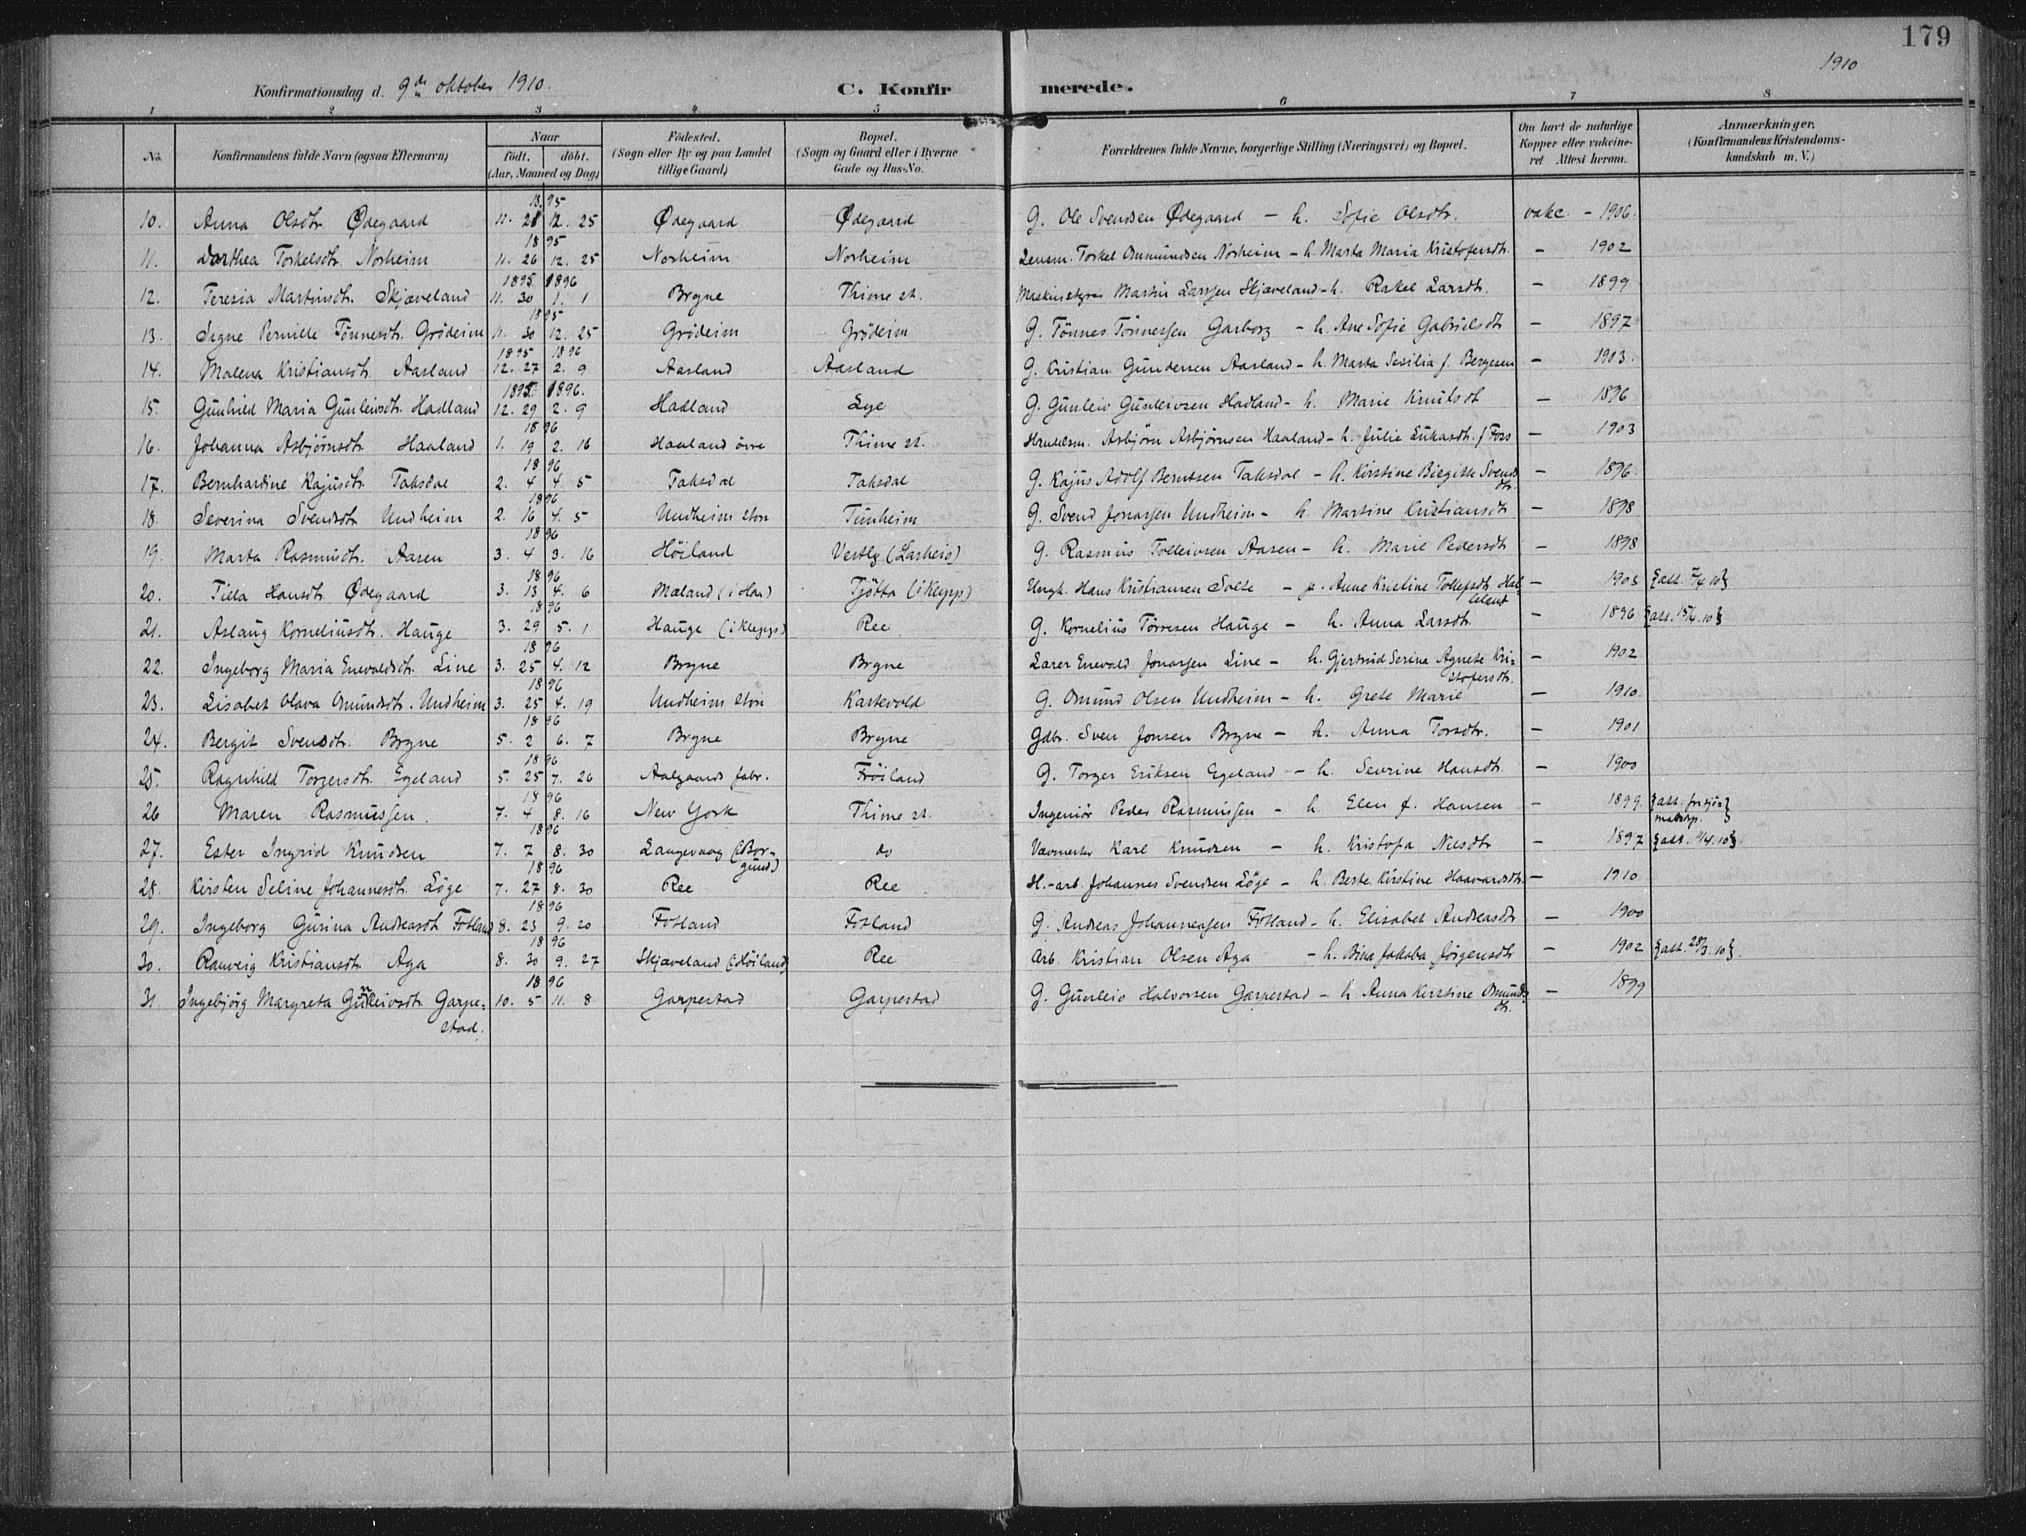 179
1910
Konfirmationsdag d. 9de oktober 1910. C. Konfirmerede.
1 2 3 4 5 6 7 8
No. Konfirmandens fulde Navn (ogsaa Efternavn) Naar födt. döbt. (Aar, Maaned og Dag) Födested. (Sogn eller By og paa Landet tillige Gaard) Bopæl. (Sogn og Gaard eller i Byerne Gade og Hus-No. Forældrenes fulde Navne, borgerlige Stilling (Næringsvei) og Bopæl. Om havt de naturlige Kopper eller vakcineret Attest herom. Anmærkninger. (Konfirmandens Kristendomskundskab m. V.)
10. Anna Olsdtr. Ødegaard 1895 11. 21 12. 25 Ødegaard Ødegaard G. Ole Svendsen Ødegaard – h. Sofie Olsdtr. vakc. – 1906.
11. Dorthea Torkelsdtr. Norheim 1895 11. 26 12. 25 Norheim Norheim Lensm. Torkel Ommundsen Norheim – h. Marta Maria Kristofersdtr. – 1902
12. Teresia Martinsdtr. Skjæveland 1895 11. 30 1896 1. 1 Bryne Thime st. Maskinstyrer Martin Larssen Skjæveland – h. Rakel Larsdtr. – 1899
13. Signe Pernille Tønnesdtr. Grødeim 1895 11. 30 12. 25 Grødeim Grødeim G. Tønnes Tønnessen Garborg – h. Ane Sofie Gabrielsdtr – 1897
14. Malena Kristiansdtr. Aasland 1895 12. 27 1896 2. 9 Aasland Aasland G. Kristian Gundersen Aasland – h. Marta Sesilia f. Bergesen – 1903.
15. Gunhild Maria Gunleivsdtr. Hadland 1895. 12. 29 1896. 2. 9 Hadland Lye G. Gunleiv Gunleivsen Hadland – h. Marie Knutsdt – 1896
16. Johanna Asbjørnsdtr. Haaland 1896 1. 19 2. 16 Haaland øvre Thime st. Handelsm. Asbjørn Asbjørnsen Haaland – h. Julie Lukasdtr. f. Foss – 1903
17. Bernhardine Kajusdtr. Taksdal 1896 2. 4 4. 5 Taksdal Taksdal G. Kajus Adolf Berntsen Taksdal – h. Kirstine Birgitte Svendsdtr. – 1896.
18. Severina Svendsdtr. Undheim 1896 2. 16 4. 5 Undheim stor Tunheim G. Svend Jonassen Undheim – h. Martine Kristiansdtr – 1898
19. Marta Rasmusdtr. Aasen 1896 3. 4 3. 16 Høiland Vestly G. Rasmus Tolleivsen Aasen – h. Marie Pedersdtr – 1898
20. Tilla Hansdtr Ødegaard 1896 3. 13 4. 6 Mæland (i Haa) Tjøtta (i Klepp) Ungk. Hans Kristiansen Solte – p. Anne Kristine Tollefsdtr. – {att. 7/4.10}
21. Aslaug Korneliusdtr. Hauge 1896 3. 29 5. 1 Hauge (i Klepp) Ree G. Kornelius Tørresen Hauge – h. Anna Larsdtr. – 1896 {att. 15/4.10}
22. Ingeborg Maria Enevaldsdtr. Line 1896 3. 25 4. 12 Bryne Bryne Lærer Enevald Jonassen Line – h. Gjertrud Serine Agnete Kristofersdtr. – 1902
23. Lisabet Olava Omundsdtr. Undheim 1896 3. 25 4. 19 Undheim stor Kartevold G. Omund Olsen Undheim – h. Grete Marie – 1910.
24. Bergit Svensdtr. Bryne 1896 5. 2 6. 7 Bryne Bryne Gdbr. Sven Jonsen Bryne – h. Anna Torsdtr. – 1901
25. Ragnhild Torgersdtr. Egeland 1896 5. 25 7. 26 Aalgaards fabr. Frøiland G. Torger Eriksen Egeland – h. Sevrine Hansdtr. – 1900
26 Maren Rasmussen. 1896 7. 4 8. 16 New York Thime st. Ingeniør Peder Rasmussen – h Elen f. Hansen – 1899
27. Ester Ingrid Knudsen 1896 7. 7 8. 30 Langevaag (i Borgund) do Karl Knudsen – h. Kristofa Nilsdtr – 1897
28. Kirsten Seline Johannesdtr. Løge 1896 7. 27 8. 30 Ree Ree H.-arb. Johannes Svendsen Løge – h. Berte Kirstine Haavardsdtr. – 1910
29. Ingeborg Gurina Andreasdtr Fotland 1896 8. 23 9. 20 Fotland Fotland G. Andreas Johannessen Fotland – h. Elisabet Andreasdtr – 1900
30. Ranveig Kristiansdtr. Aga 1896 8. 30 9. 27 Skjæveland (i Høiland) Ree Arb. Kristian Olsen Aga – h. Bina Jakoba Jørgensdtr – 1902 {att. 28/3.10}
31. Ingebjørg Margreta Gunleivsdtr. Garpestad. 1896 10. 5 11. 8 Garpestad Garpestad G. Gunleiv Halvorsen Garpestad – h Anna Kirstine Omundsdtr. – 1899